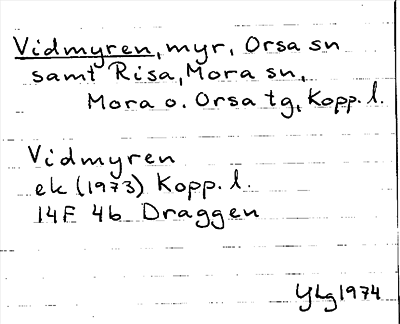 Vidmyren, myr, Orsa sn
samt Risa, Mora sn,
Mora o. Orsa tg, Kopp. l.
Vidmyren
ek (1973) Kopp. l.
14F 4b Draggen
YLg 1974